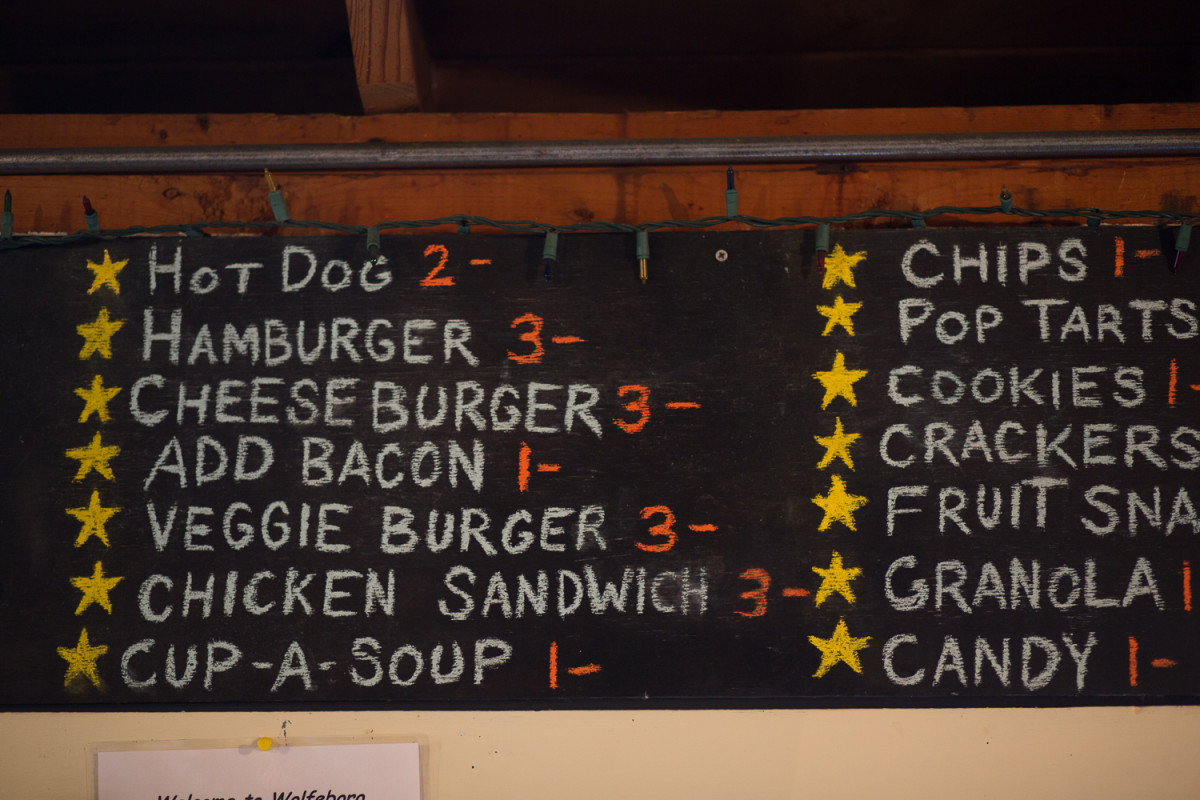 HOT DOG 2-
HAMBURGER 3-
CHEESEBURGER 3-
ADD BACON 1-
VEGGIE BURGER 3-
CHICKEN SANDWICH 3-
CUP-A-SOUP 1-
CHIPS 1-
POP TARTS
COOKIES 1-
CRACKERS
FRUIT SNA
GRANOLA 1
CANDY 1-
Welcome to Wolfeboro